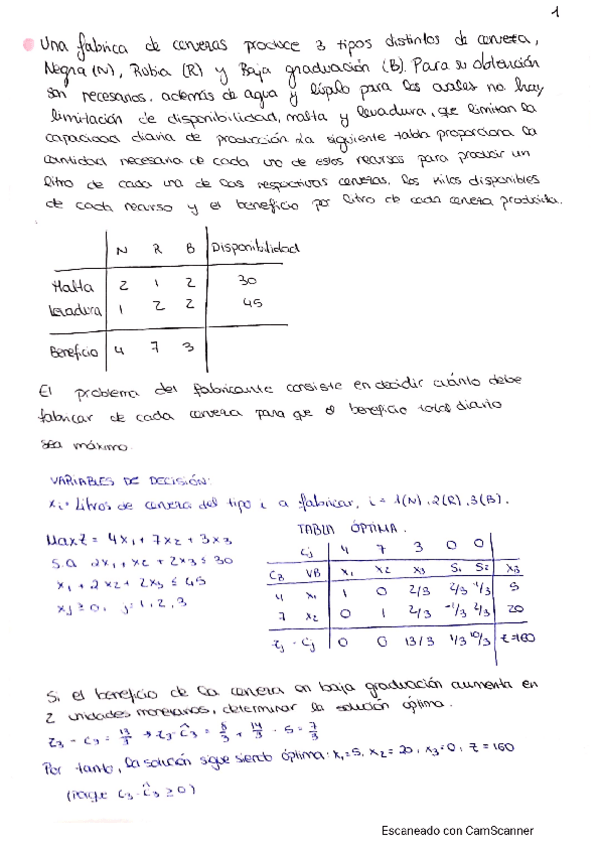 1
Una fabrica de cervezas produce 3 tipos distintos de cerveza,
Negra (N), Rubia (R) y Baja graduación (B). Para su obtención
son necesarios, además de agua y lúpulo para los cuales no hay
limitación de disponibilidad, malta y levadura, que limitan la
capacidad diaria de producción. La siguiente tabla proporciona la
cantidad necesaria de cada uno de estos recursos para producir un
litro de cada una de las respectivas cervezas, los kilos disponibles
de cada recurso y el beneficio por litro de cada cerveza producida.
N R B Disponibilidad
Malta 2 1 2 30
levadura 1 2 2 45
Beneficio 4 7 3
El problema del fabricante consiste en decidir cuánto debe
fabricar de cada cerveza para que el beneficio total diario
sea máximo.
VARIABLES DE DECISIÓN:
xi: litros de cerveza del tipo i a fabricar, i = 1(N), 2(R), 3(B).
Max Z = 4x1 + 7x2 + 3x3
s.a 2x1 + x2 + 2x3 ≤ 30
x1 + 2x2 + 2x3 ≤ 45
xj ≥ 0, j = 1, 2, 3
TABLA ÓPTIMA.
Cj 4 7 3 0 0
CB VB x1 x2 x3 S1 S2 XB
4 x1 1 0 2/3 2/3 -1/3 5
7 x2 0 1 2/3 -1/3 2/3 20
zj - cj 0 0 13/3 1/3 10/3 z=160
Si el beneficio de la cerveza en baja graduación aumenta en
2 unidades monetarias, determinar la solución óptima.
z3 - c3 = 13/3 → z3 - ĉ3 = 8/3 + 14/3 - 5 = 7/3
Por tanto, la solución sigue siendo óptima: x1=5, x2=20, x3=0, z=160
Escaneado con CamScanner